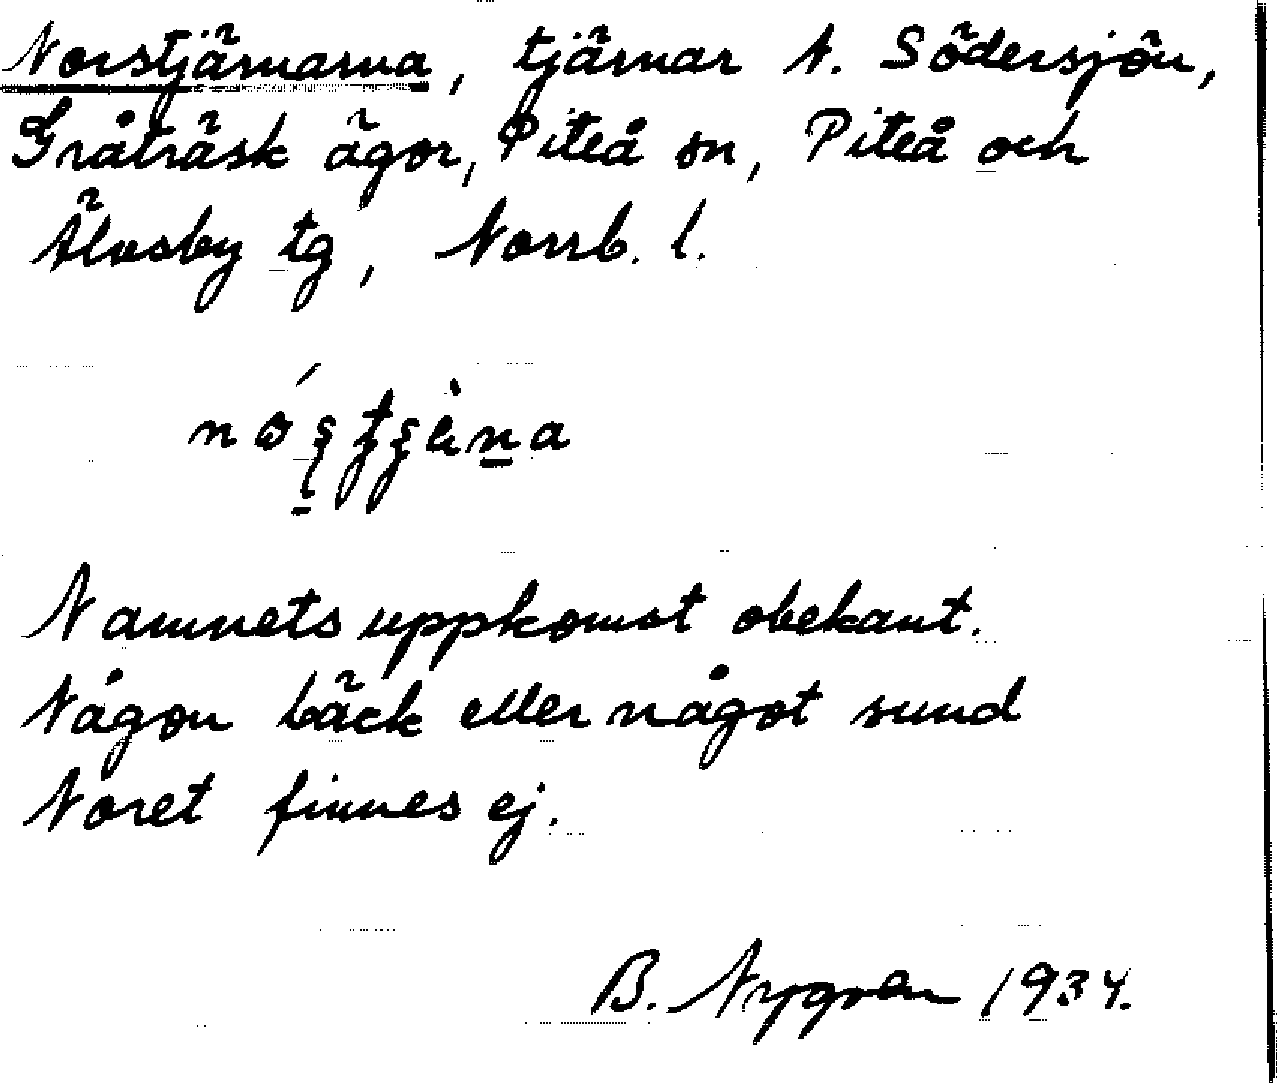 Norstjärnarna, tjärnar N. Södersjön,
Gråträsk ägor, Piteå sn, Piteå och
Älvsby tg, Norrb. l.
Namnets uppkomst obekant.
Någon bäck eller något sund
Noret finnes ej.
B. Nygren 1934.